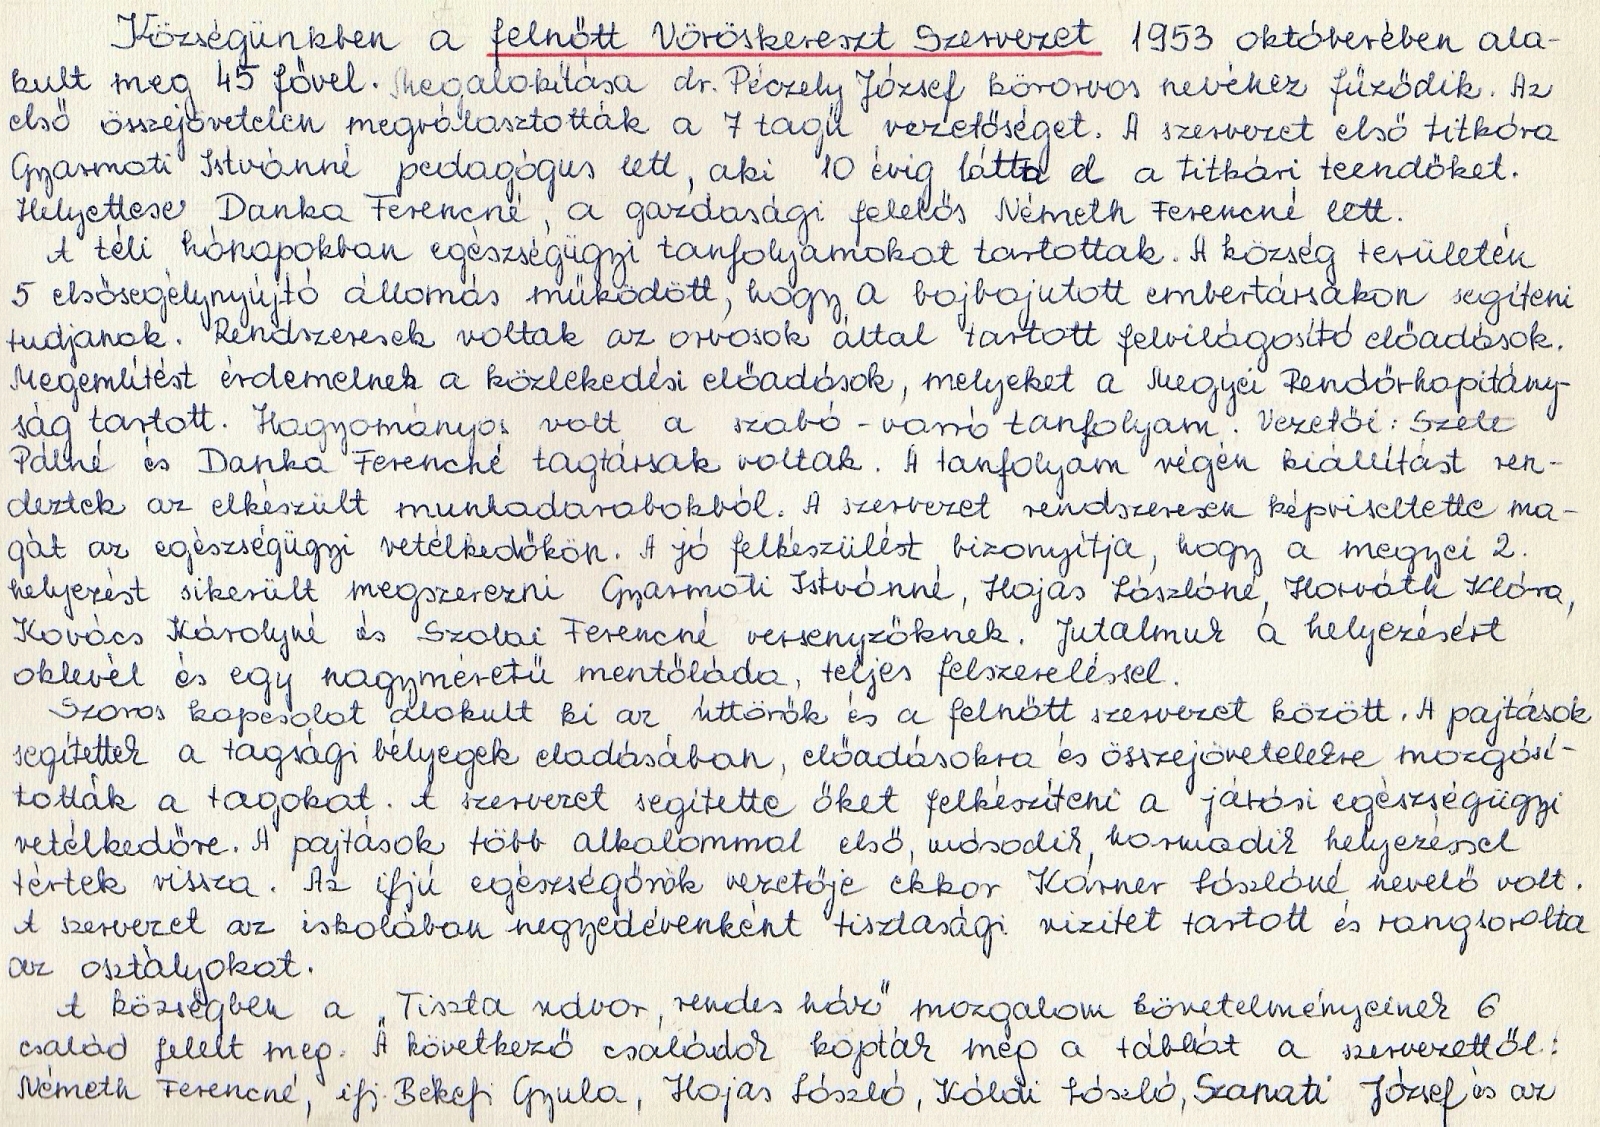 Községünkben a felnőtt Vöröskereszt Szervezet 1953 októberében ala-
kult meg 45 fővel. Megalakítása dr. Péczely József körorvos nevéhez fűződik. Az
első összejövetelen megválasztották a 7 tagú vezetőséget. A szervezet első titkára
Gyarmati Istvánné pedagógus lett, aki 10 évig látta el a titkári teendőket.
Helyettese Danka Ferencné, a gazdasági felelős Németh Ferencné lett.
A téli hónapokban egészségügyi tanfolyamokat tartottak. A község területén
5 elsősegélynyújtó állomás működött, hogy a bajbajutott embertársakon segíteni
tudjanak. Rendszeresek voltak az orvosok által tartott felvilágosító előadások.
Megemlítést érdemelnek a közlekedési előadások, melyeket a Megyei Rendőrkapitány-
ság tartott. Hagyományos volt a szabó-varró tanfolyam. Vezetői: Szele
Pálné és Danka Ferencné tagtársak voltak. A tanfolyam végén kiállítást ren-
deztek az elkészült munkadarabokból. A szervezet rendszeresen képviseltette ma-
gát az egészségügyi vetélkedőkön. A jó felkészülést bizonyítja, hogy a megyei 2.
helyezést sikerült megszerezni Gyarmati Istvánné, Hajas Lászlóné, Horváth Klára,
Kovács Károlyné és Szalai Ferencné versenyzőknek. Jutalmuk a helyezésért
oklevél és egy nagyméretű mentőláda, teljes felszereléssel.
Szoros kapcsolat alakult ki az úttörők és a felnőtt szervezet között. A pajtások
segítettek a tagsági bélyegek eladásában, előadásokra és összejövetelekre mozgósí-
tották a tagokat. A szervezet segítette őket felkészíteni a járási egészségügyi
vetélkedőre. A pajtások több alkalommal első, második, harmadik helyezéssel
tértek vissza. Az ifjú egészségőrök vezetője ekkor Kárner Lászlóné nevelő volt.
A szervezet az iskolában negyedévenként tisztasági vizitet tartott és rangsorolta
az osztályokat.
A községben a „Tiszta udvar, rendes ház" mozgalom követelményeinek 6
család felelt meg. A következő családok kapták meg a táblát a szervezettől:
Németh Ferencné, ifj. Békefi Gyula, Hajas László, Káldi László, Szanati József és az